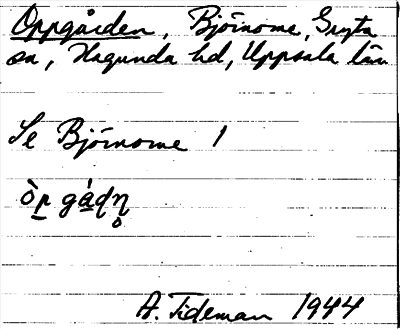 Oppgården, Björnome, Gryta
sn, Hagunda hd, Uppsala län
Se Björnome 1
òp̲ gá̲ɖn̥
A. Tideman 1944